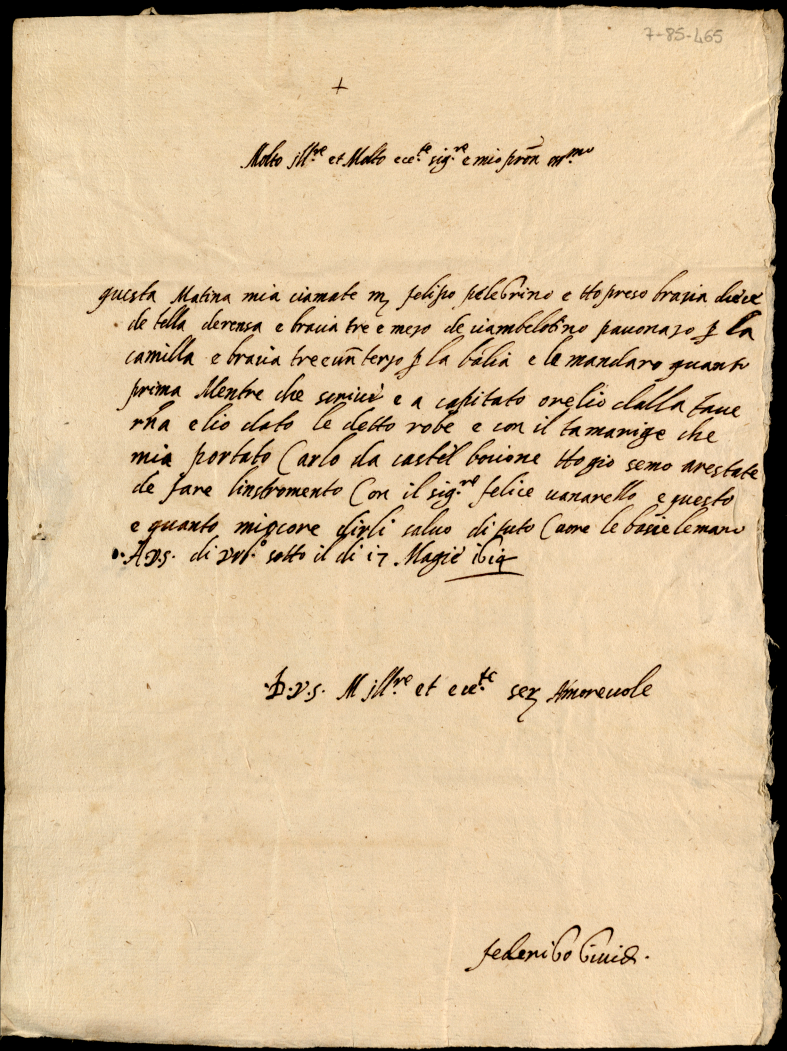 7-85-465
+
Molto jll.re et Molto ecc.te sig.re e mio pron
questa Matina mia ciamate felipo pelegrino e tto preso bracia diece
de tella derensa e bracia tre e mezo de ciambelotino pauonazo p la
camilla e bracia tre e un terzo p la balia e le mandaro quanto
prima Mentre che e a capitato orelio dalla taue
rna e lio dato le detto robe e con il tamarige che
mia portato Carlo da castel bocione tto gio semo arestate
de fare linstromento Con il sig.re felice uanarello e questo
e quanto micore dirli saluo di tuto Cuore le bacie le mane
A.V.S. di sotto il di 17 Magie 1614
D.V.S. M jll.re et ecc.te ser Amoreuole
federigo